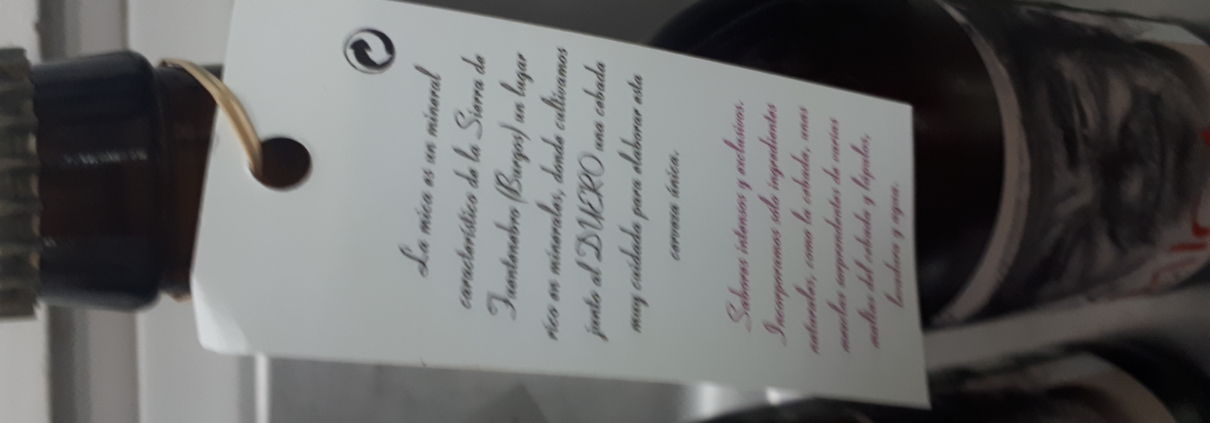 La mica es un mineral
característico de la Sierra de
Fuentenebro (Burgos) un lugar
rico en minerales, donde cultivamos
junto al DUERO una cebada
muy cuidada para elaborar esta
cerveza única.
Sabores intensos y exclusivos.
Incorporamos sólo ingredientes
naturales, como la cebada, unas
mezclas sorprendentes de varias
maltas del cebada y lúpulos,
levadura y agua.